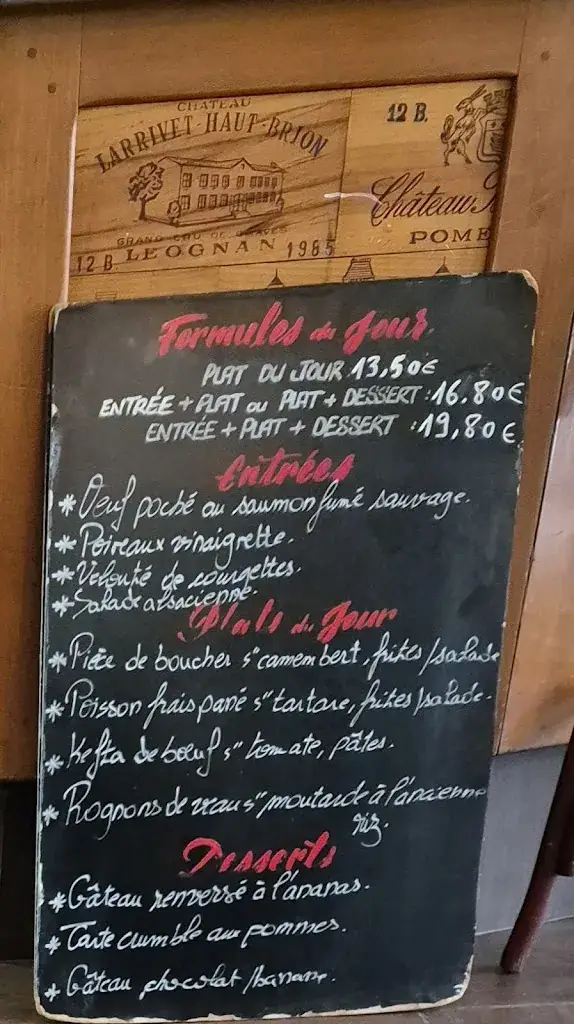 CHATEAU
LARRIVET-HAUT-BRION
GRAND CRU DE GRAVES
12 B. LEOGNAN 1985
12 B.
Château
POME
Formules du Jour
PLAT DU JOUR 13,50€
ENTRÉE + PLAT ou PLAT + DESSERT : 16.80€
ENTRÉE + PLAT + DESSERT : 19,80€
Entrées
* Oeuf poché au saumon fumé sauvage.
* Poireaux vinaigrette.
* Velouté de courgettes.
* Salade alsacienne.
Plats du Jour
* Pièce de boucher s" camembert, frites/salade
* Poisson frais pané s" tartare, frites/salade.
* Kefta de bœuf s" tomate, pâtes.
* Rognons de veau s" moutarde à l'ancienne
riz.
Desserts
* Gâteau renversé à l'ananas.
* Tarte crumble aux pommes.
* Gâteau chocolat/banane.